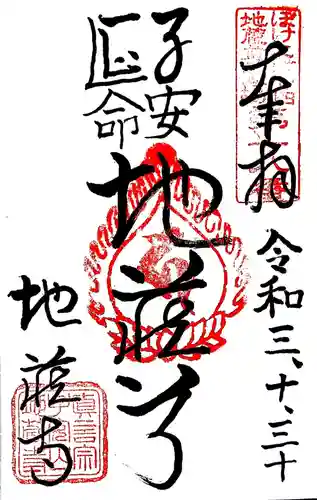 奉拝
令和三、十、三十
子安
延命
地蔵尊
地蔵寺